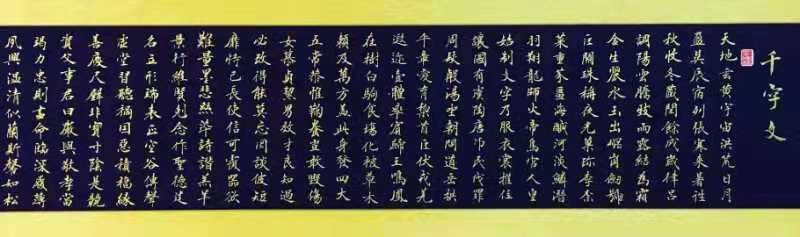 千字文
天地玄黃宇宙洪荒日月
盈昃辰宿列張寒來暑往
秋收冬藏閏餘成歲律呂
調陽雲騰致雨露結為霜
金生麗水玉出崑岡劍號
巨闕珠稱夜光果珍李柰
菜重芥薑海鹹河淡鱗潛
羽翔龍師火帝鳥官人皇
始制文字乃服衣裳推位
讓國有虞陶唐弔民伐罪
周發殷湯坐朝問道垂拱
平章愛育黎首臣伏戎羌
遐邇壹體率賓歸王鳴鳳
在樹白駒食場化被草木
賴及萬方蓋此身發四大
五常恭惟鞠養豈敢毀傷
女慕貞絜男效才良知過
必改得能莫忘罔談彼短
靡恃己長使信可覆器欲
難量墨悲絲染詩讚羔羊
景行維賢克念作聖德建
名立形端表正空谷傳聲
虛堂習聽禍因惡積福緣
善慶尺璧非寶寸陰是競
資父事君曰嚴與敬孝當
竭力忠則盡命臨深履薄
夙興溫凊似蘭斯馨如松